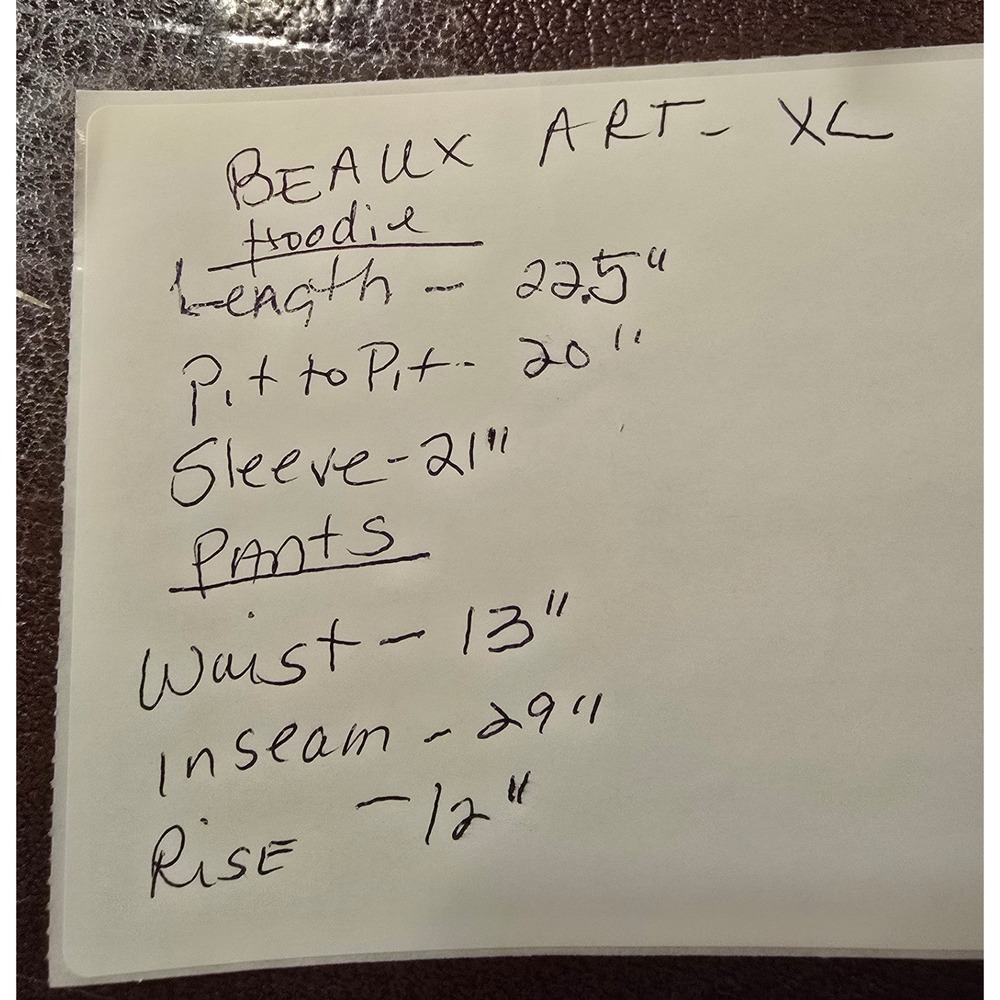 BEAUX ART- XL
Hoodie
Length - 22.5"
Pit to Pit- 20"
Sleeve-21"
Pants
Waist - 13"
Inseam - 29"
RiSE - 12"